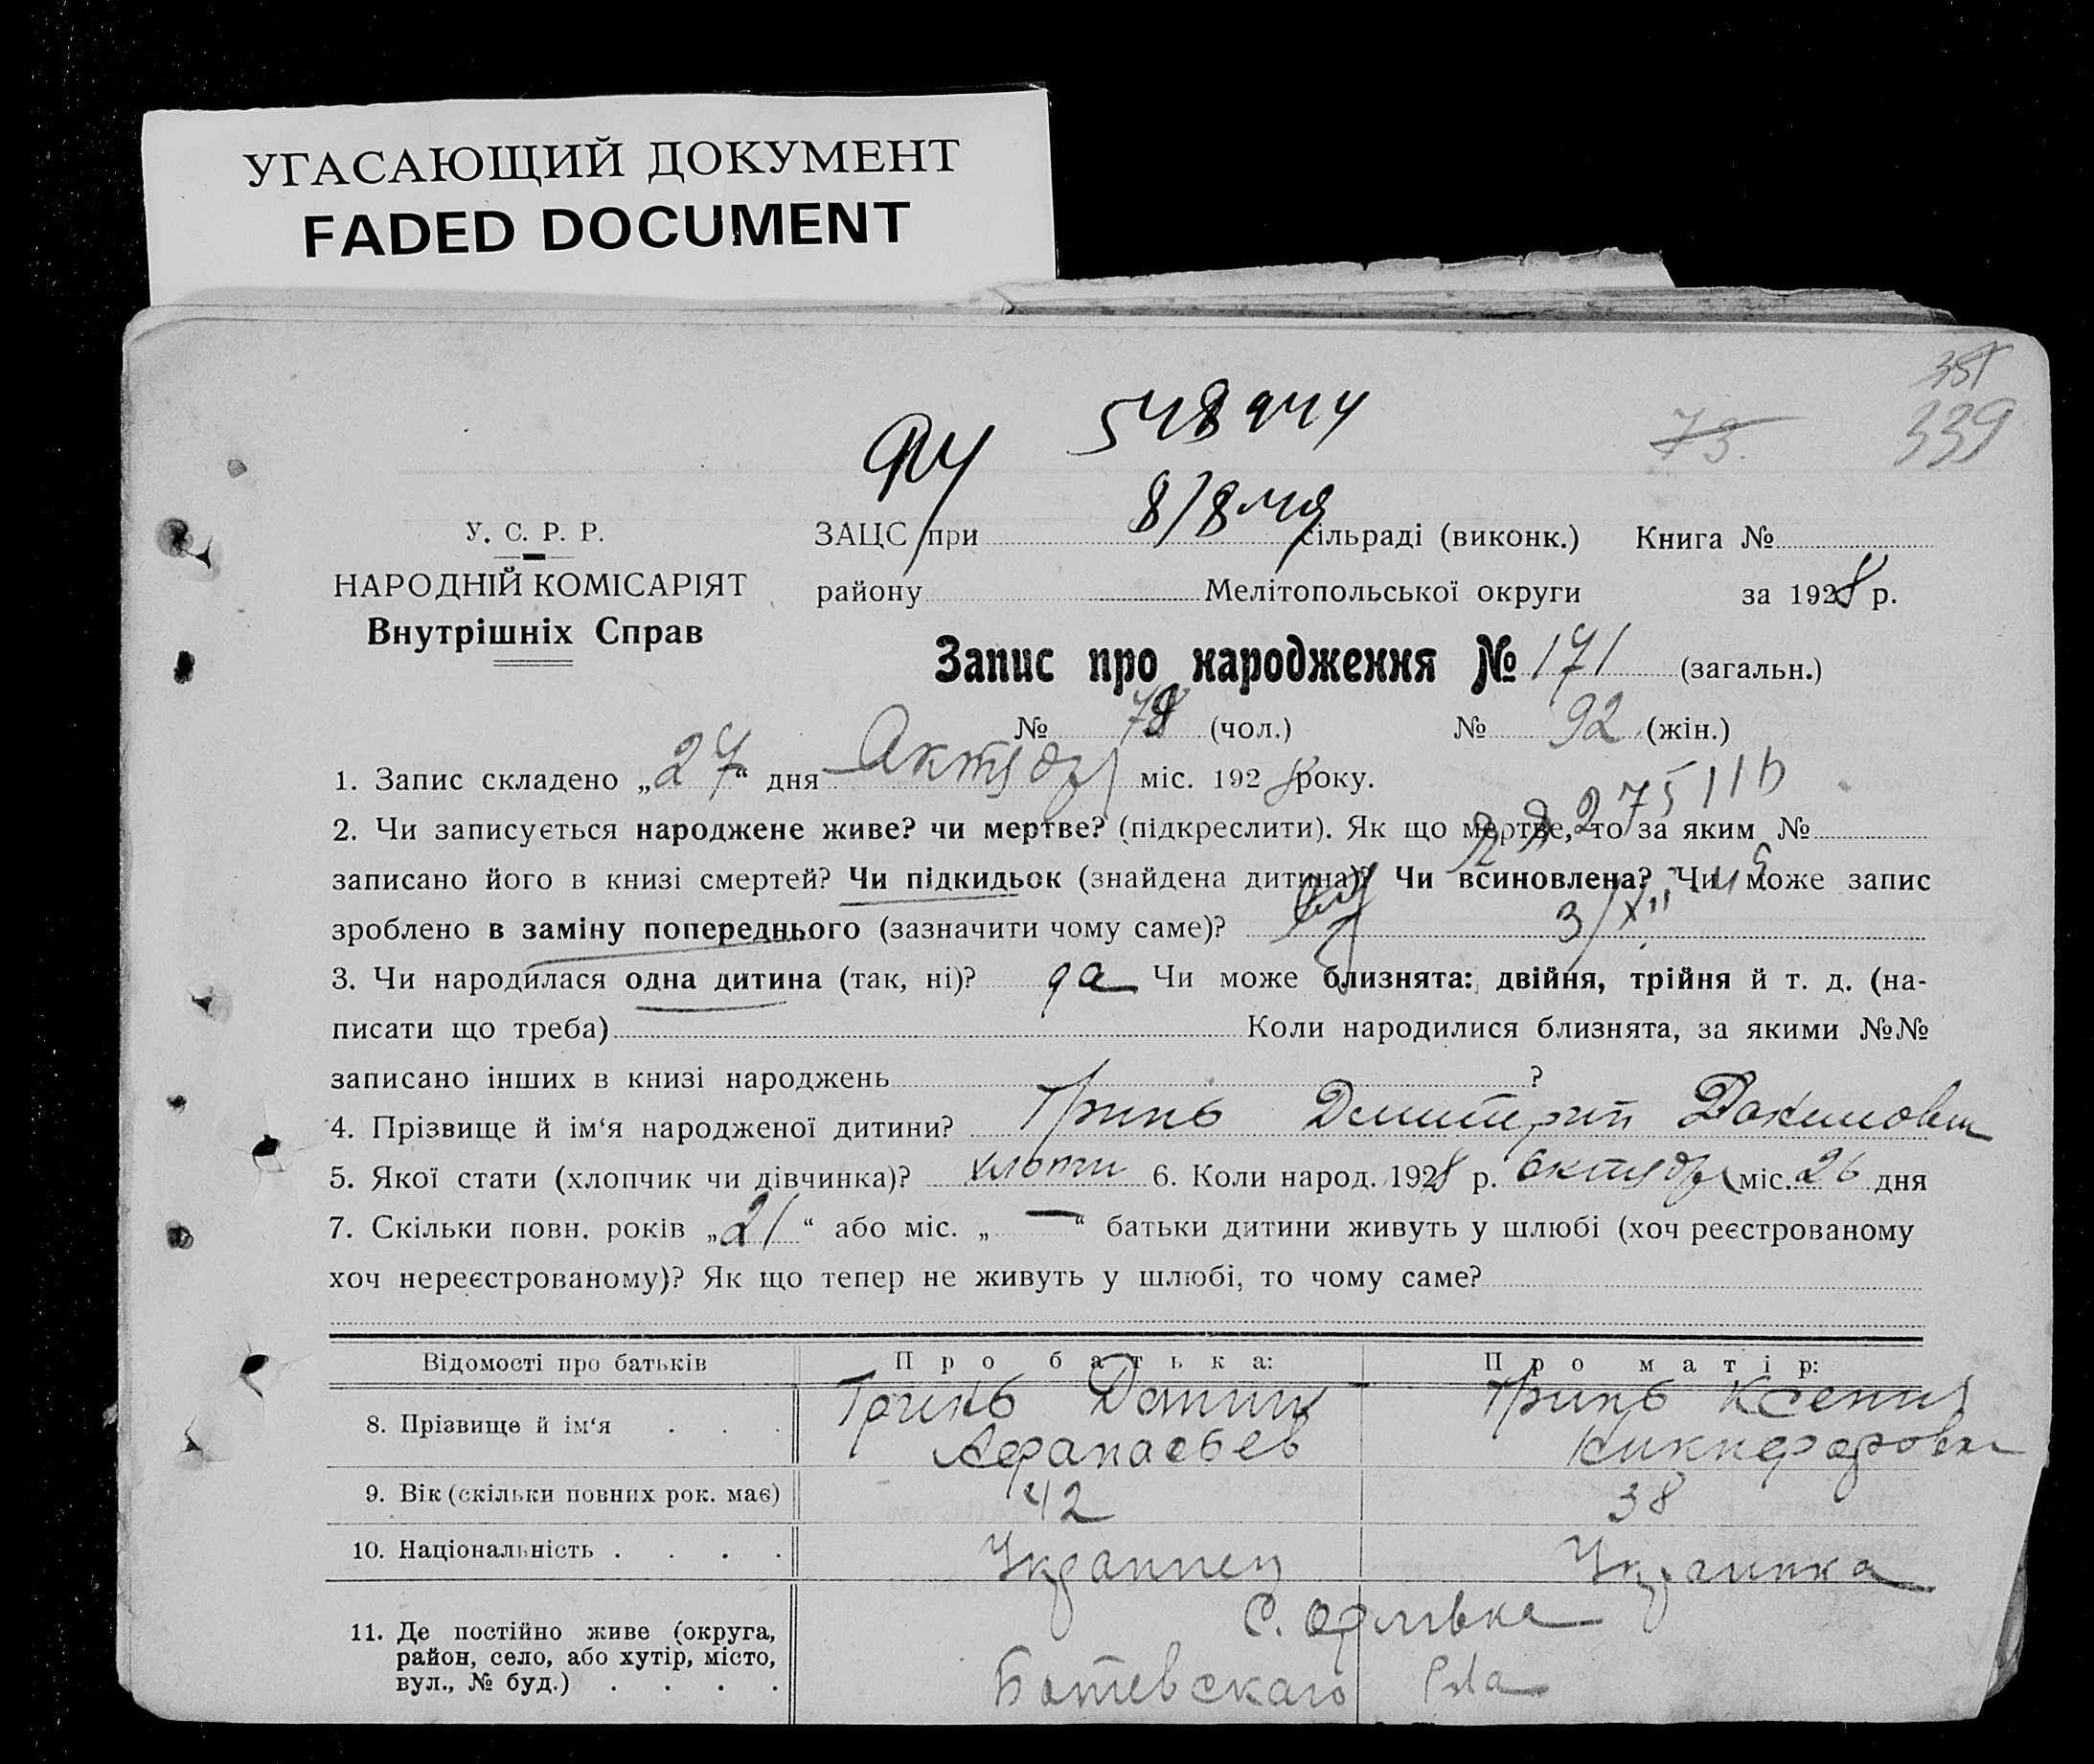 УГАСАЮЩИЙ ДОКУМЕНТ
FADED DOCUMENT
351
73.
339
548944
У. С. Р. Р.
НАРОДНІЙ КОМІСАРІЯТ
Внутрішніх Справ
ЗАЦС при сільраді (виконк.) Книга №
району Мелітопольської округи за 1928 р.
Запис про народження № 171 (загальн.)
№ 78 (чол.) № 92 (жін.)
1. Запис складено „27“ дня Актябр міс. 1928 року.
2. Чи записується народжене живе? чи мертве? (підкреслити). Як що мертве, то за яким №
записано його в книзі смертей? Чи підкидьок (знайдена дитина)? Чи всиновлена? Чи може запис
зроблено в заміну попереднього (зазначити чому саме)? 3/XII
3. Чи народилася одна дитина (так, ні)? да Чи може близнята: двійня, трійня й т. д. (на-
писати що треба) Коли народилися близнята, за якими №№
записано інших в книзі народжень ?
4. Прізвище й ім‘я народженої дитини? Гринь Дмитрий
5. Якої стати (хлопчик чи дівчинка)? 6. Коли народ. 1928 р. Октябр міс. 26 дня
7. Скільки повн. років „21“ або міс. „—“ батьки дитини живуть у шлюбі (хоч реєстрованому
хоч нереєстрованому)? Як що тепер не живуть у шлюбі, то чому саме?
Відомості про батьків Про батька: Про матір:
8. Прізвище й ім‘я . . . Гринь Гринь Ксения
Афанасьев Никифоровна
9. Вік (скільки повних рок. має) 42 38
10. Національність . . . . Украинец Украинка
11. Де постійно живе (округа,
район, село, або хутір, місто,
вул., № буд.) . . . .
С. Орливка
Ботевскаго Р-на